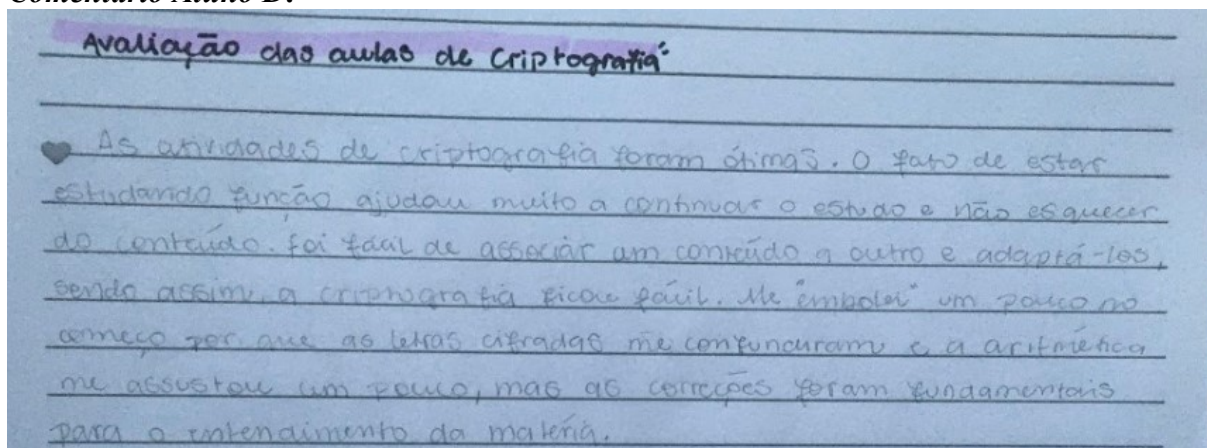 Comentário Aluno D:
Avaliação das aulas de Criptografia
As atividades de criptografia foram ótimas. O fato de estar
estudando função ajudou muito a continuar o estudo e não esquecer
do conteúdo. Foi fácil de associar um conteúdo a outro e adaptá-los,
sendo assim, a criptografia ficou fácil. Me "embolei" um pouco no
começo por que as letras cifradas me confundiram e a aritmética
me assustou um pouco, mas as correções foram fundamentais
para o entendimento da matéria.